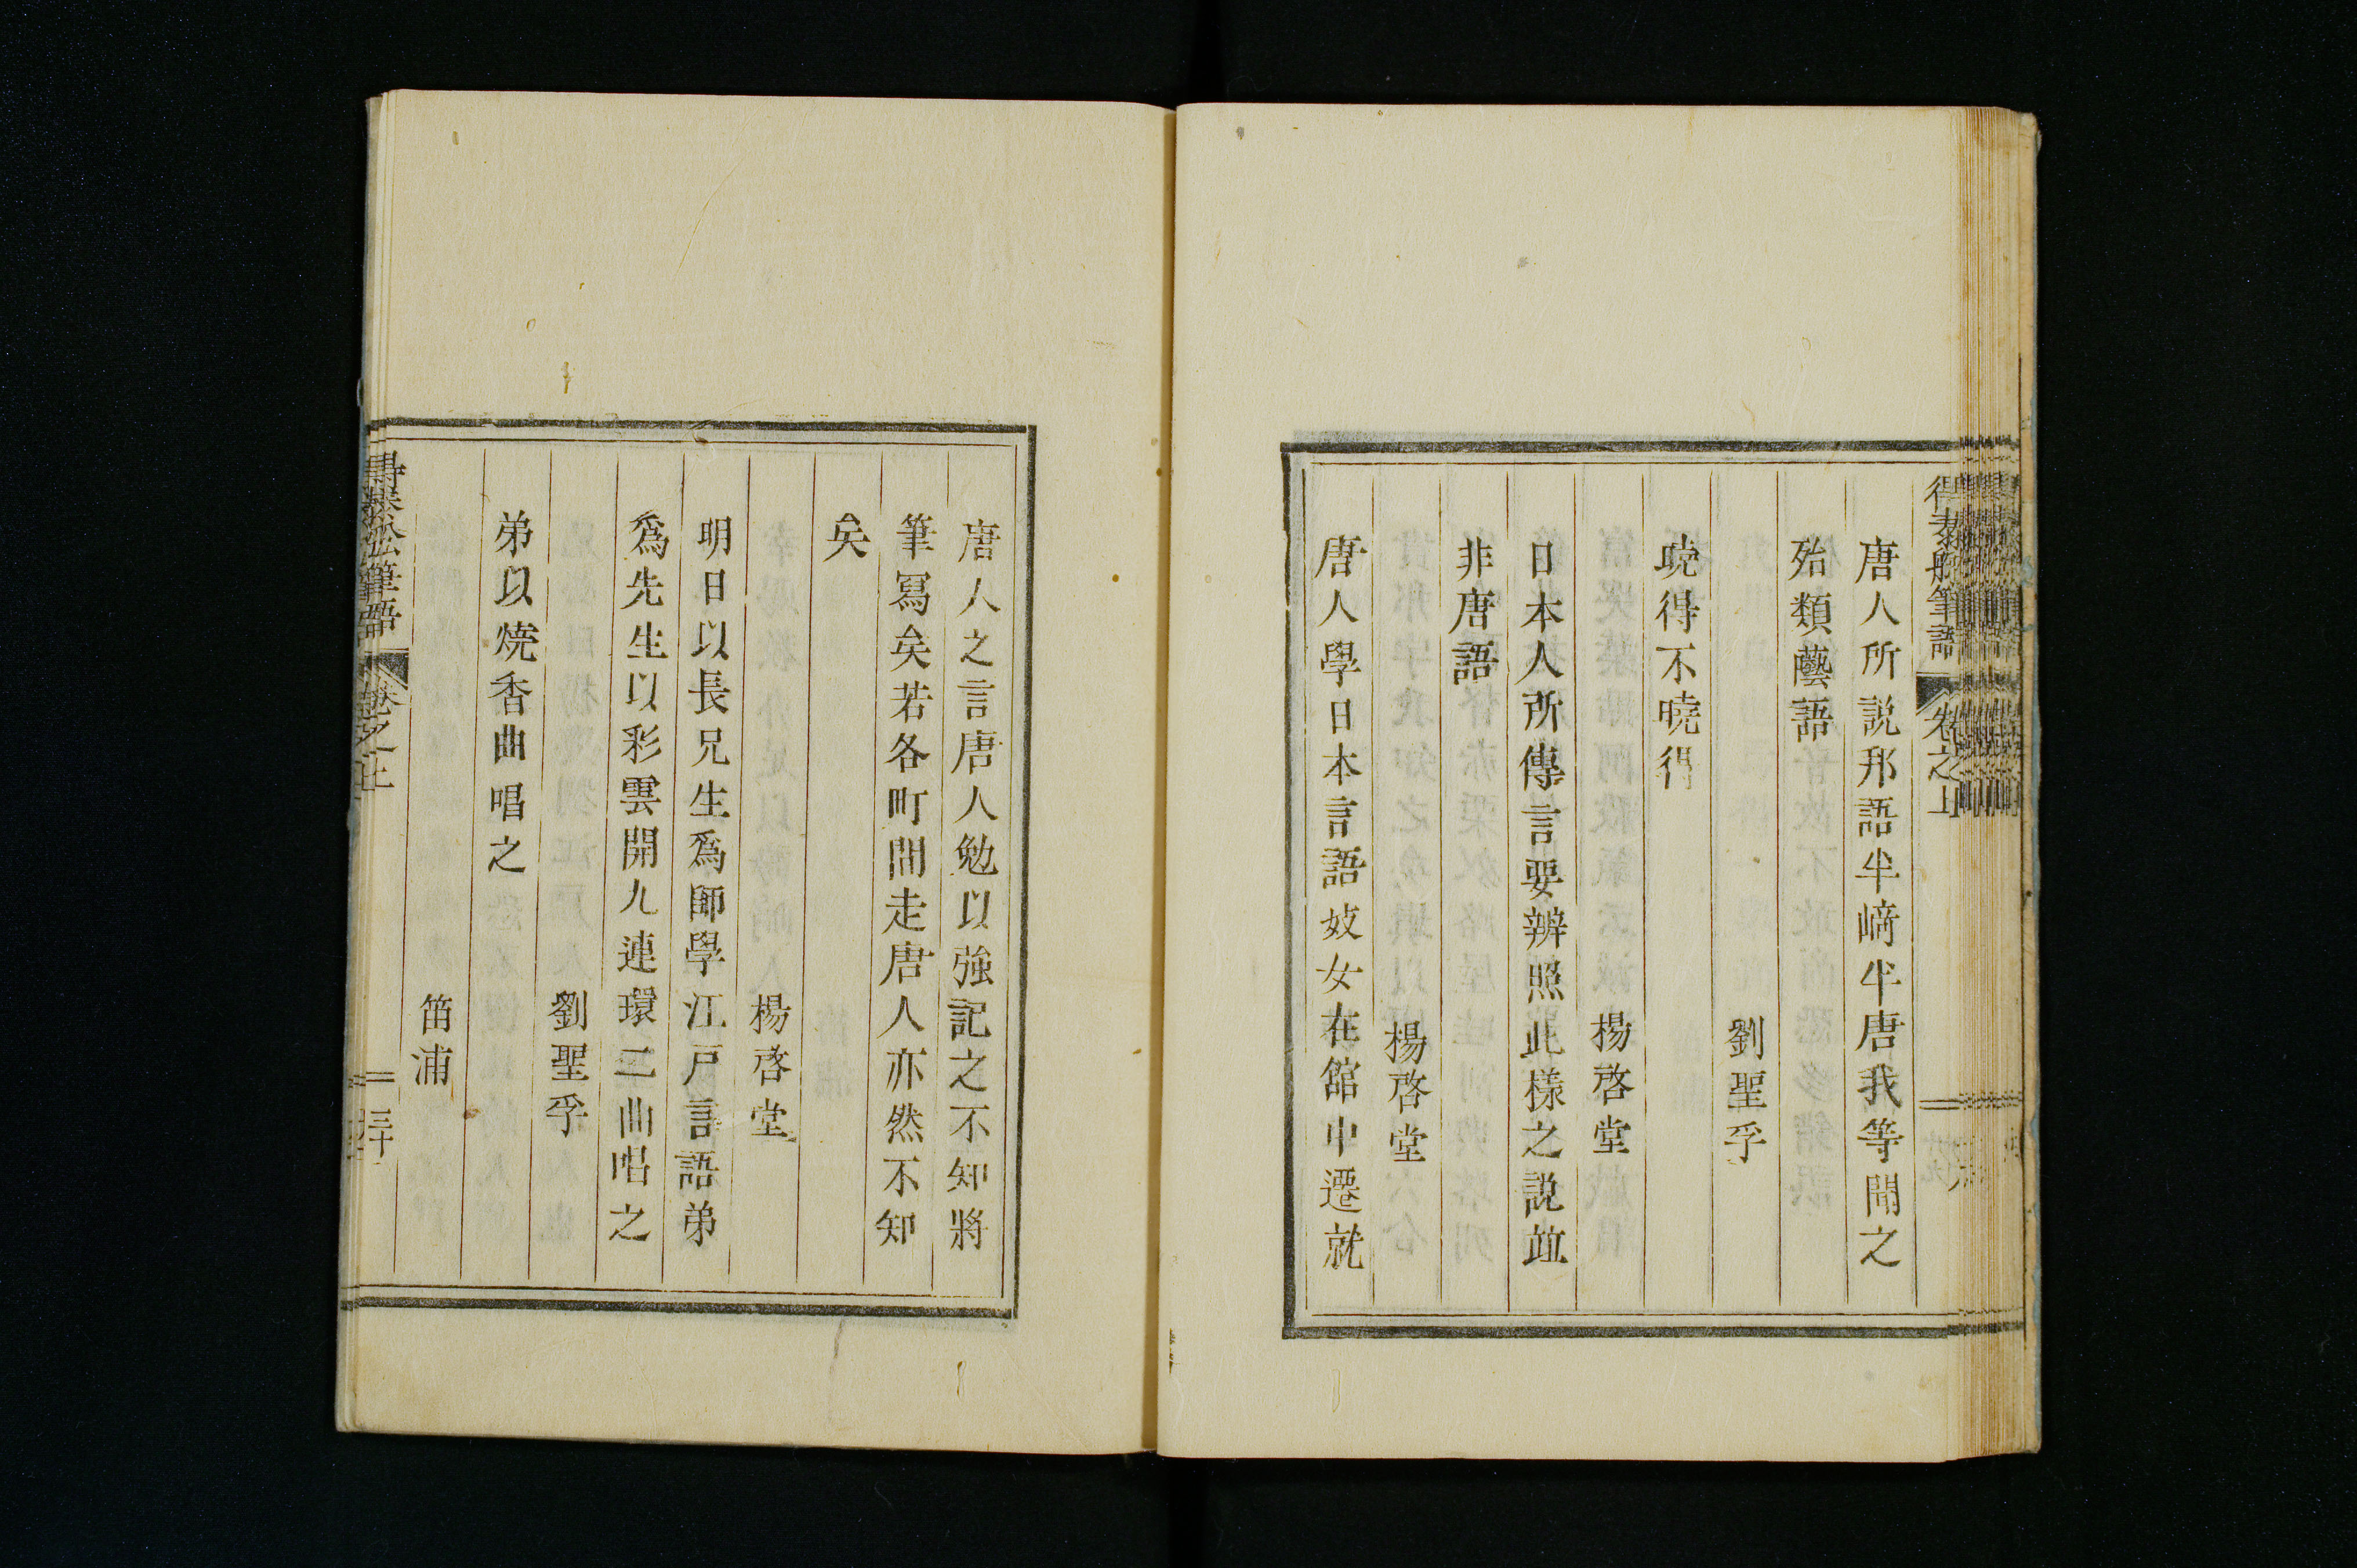 得泰舩筆語 卷之上
唐人所説邦語半﨑半唐我等聞之
殆類藝語
劉聖孚
暁得不曉得
楊啓堂
日本人所傳言要辨照此樣之説竝
非唐語
楊啓堂
唐人學日本言語妓女在舘中遷就
唐人之言唐人勉以強記之不知將
筆冩矣若各町間走唐人亦然不知
矣
楊啓堂
明日以長兄生為師學江戸言語弟
為先生以彩雲開九連環二曲唱之
劉聖孚
弟以焼香曲唱之
笛浦
卷之上
三十